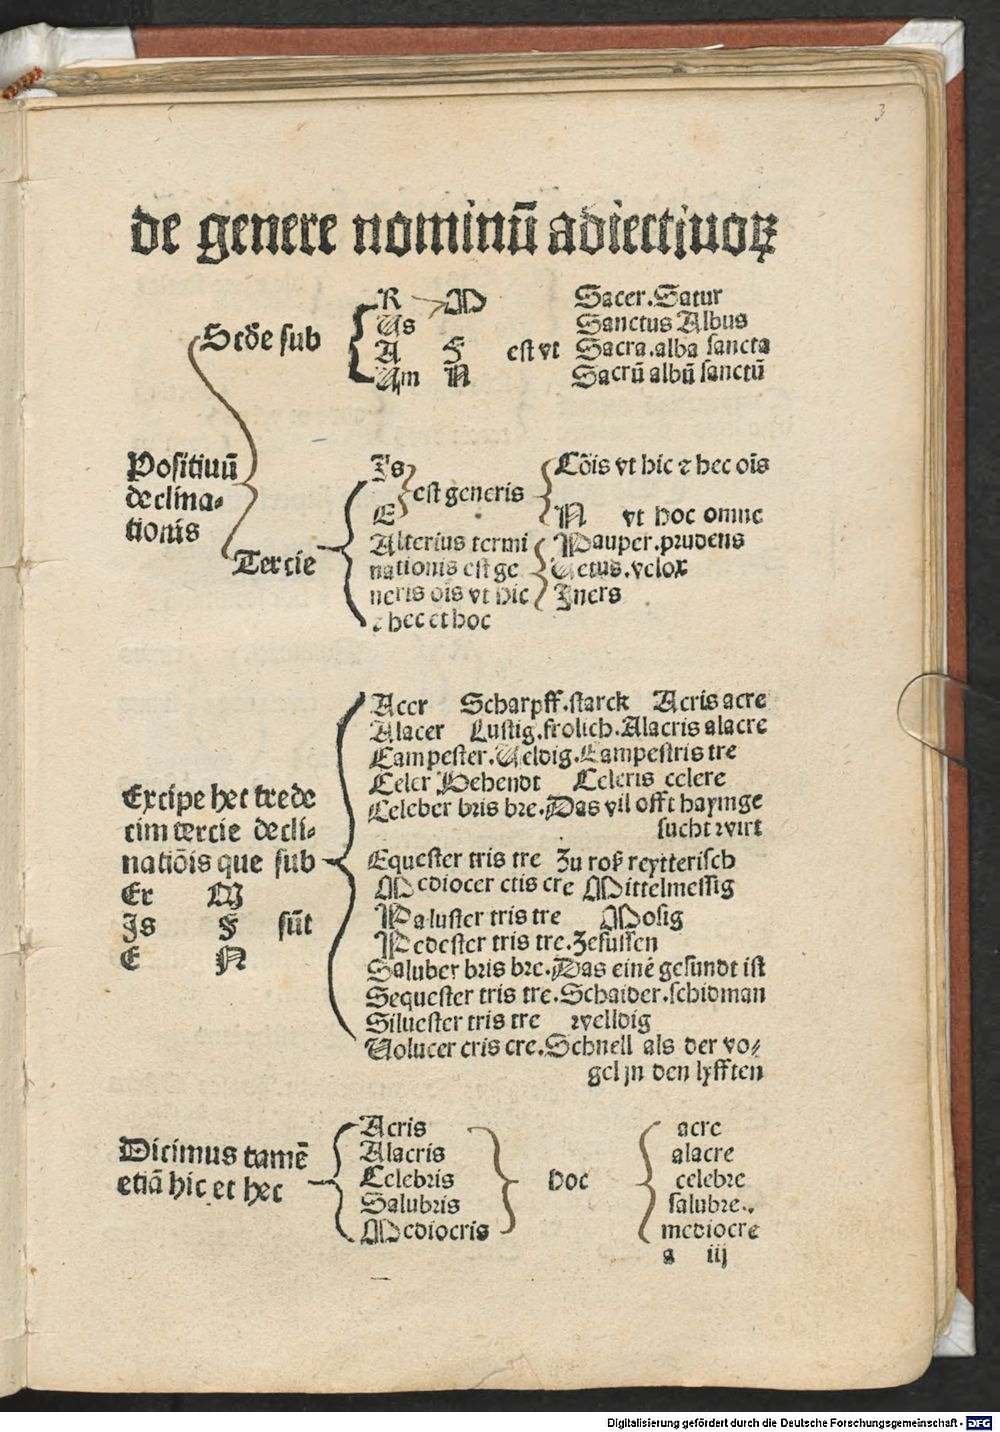 3
de genere nominū adiectiuoꝝ
R M Sacer. Satur
Scd̄e sub Us Sanctus Albus
A F est vt Sacra. alba sancta
Um N Sacrū albū sanctū
Positiuū declina⸗ tionis
Is est generis Cōis vt hic ⁊ hec oīs
E N vt hoc omne
Tercie
Alterius termi Pauper. prudens
nationis est ge Uetus. velox
neris oīs vt hic Iners
⁊ hec et hoc
Excipe hec trede
cim tercie decli⸗
natiōis que sub
Er M
Is F sūt
E N
Acer Scharpff. starck Acris acre
Alacer Lustig. frolich. Alacris alacre
Campester. Veldig. Campestris tre
Celer Behendt Celeris celere
Celeber bris bre. Das vil offt haymge
sucht wirt
Equester tris tre Zu roß reytterisch
Mediocer cris cre Mittelmessig
Paluster tris tre Mosig
Pedester tris tre. Zefussen
Saluber bris bre. Das einē gesundt ist
Sequester tris tre. Schaider. schidman
Siluester tris tre welldig
Uolucer cris cre. Schnell als der vo⸗
gel jn den lyfften
Dicimus tamē
etiā hic et hec
Acris acre
Alacris alacre
Celebris hoc celebre
Salubris salubre.
Mediocris mediocre
a iij
Digitalisierung gefördert durch die Deutsche Forschungsgemeinschaft - DFG